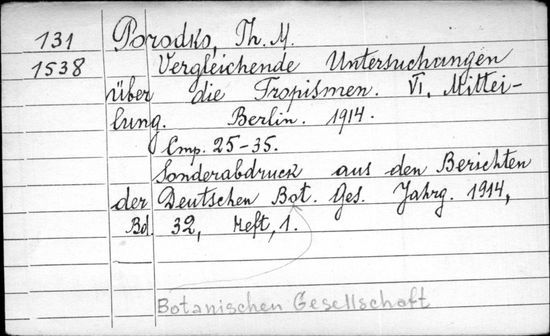 131 Porodko, Th. M.
1538 Vergleichende Untersuchungen
über die Tropismen. VI. Mittei-
lung. Berlin. 1914.
Cmp. 25-35.
Sonderabdruck aus den Berichten
der Deutschen Bot. Ges. Jahrg. 1914,
Bd. 32, Heft, 1.
Botanischen Gesellschaft